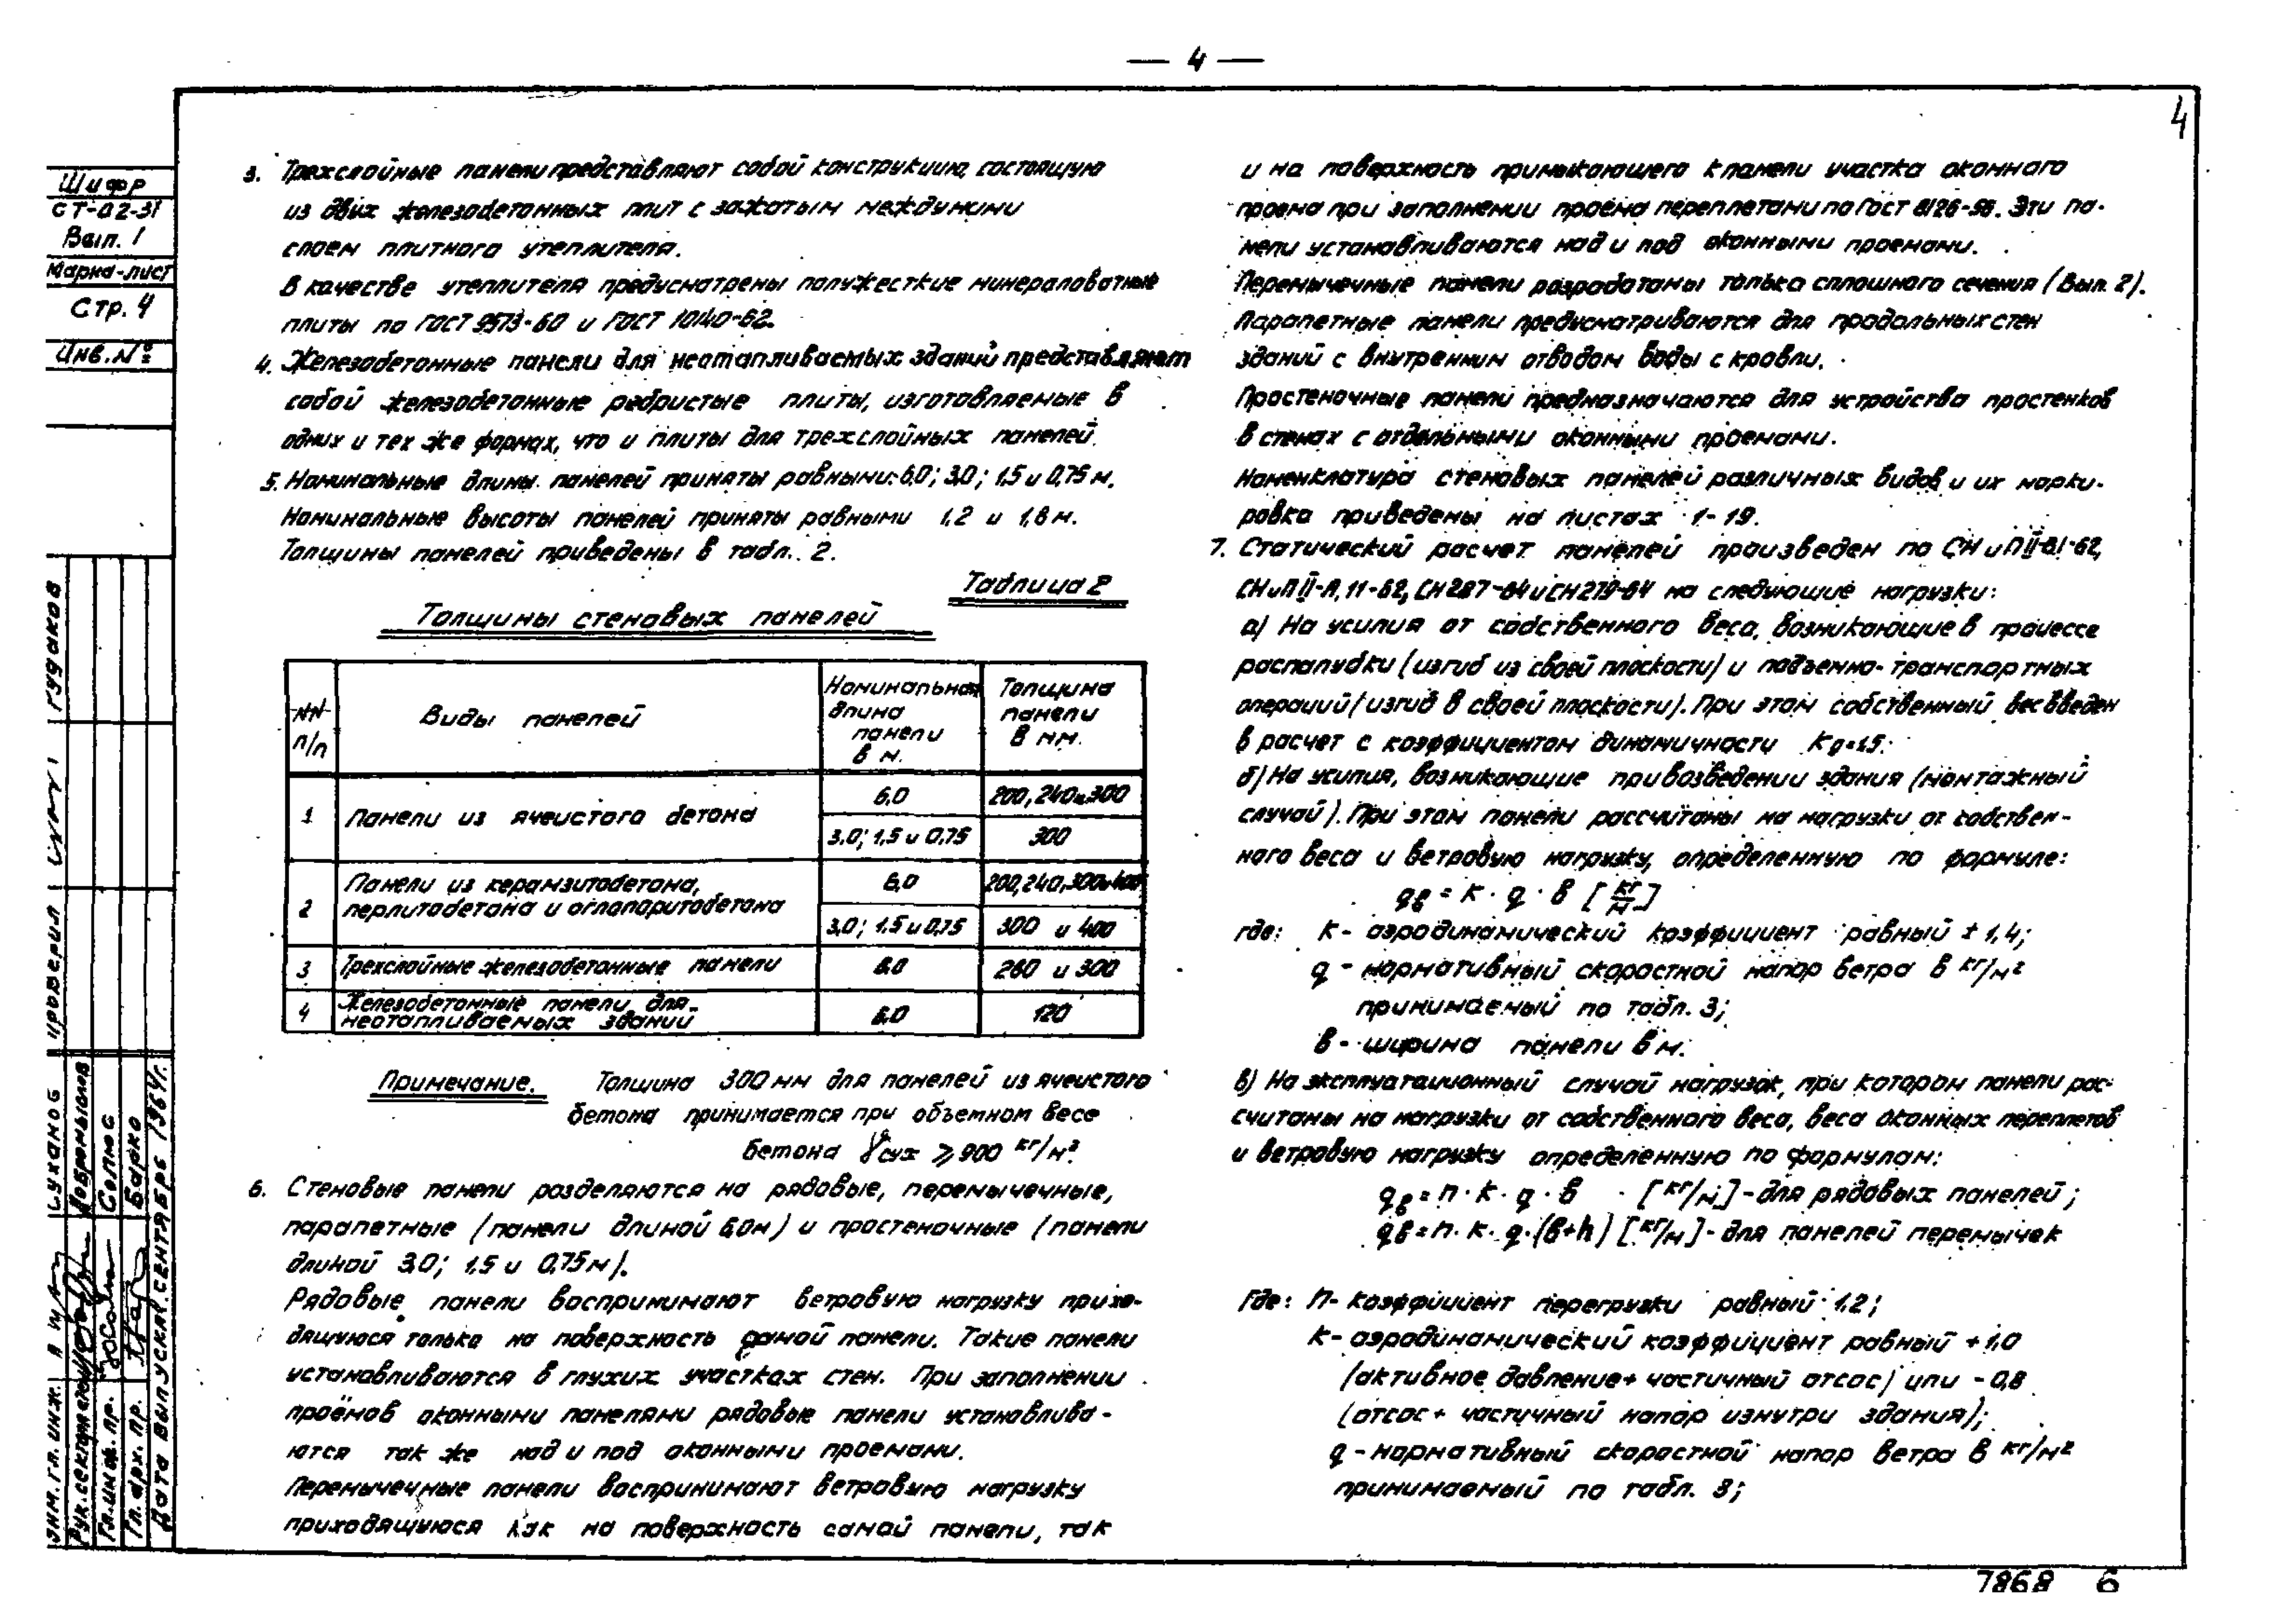 — 4 —
4
Шифр
СТ-02-31
Вып. 1
Марка-лист
Стр. 4
Инв.№
3. Трехслойные панели представляют собой конструкцию, состоящую
из двух железобетонных плит с зажатым между ними
слоем плитного утеплителя.
В качестве утеплителя предусмотрены полужесткие минераловатные
плиты по ГОСТ 9573-60 и ГОСТ 10140-62.
4. Железобетонные панели для неотапливаемых зданий представляют
собой железобетонные ребристые плиты, изготовляемые в
одних и тех же формах, что и плиты для трехслойных панелей.
5. Номинальные длины панелей приняты равными: 6,0; 3,0; 1,5 и 0,75 м.
Номинальные высоты панелей приняты равными 1,2 и 1,8 м.
Толщины панелей приведены в табл. 2.
Таблица 2
Толщины стеновых панелей
NN п/п
Виды панелей
Номинальная длина панели в м.
Толщина панели в мм.
1 Панели из ячеистого бетона 6,0 200, 240 и 300
3,0; 1,5 и 0,75 300
2 Панели из керамзитобетона, 6,0 200, 240, 300 и 400
перлитобетона и аглопоритобетона 3,0; 1,5 и 0,75 300 и 400
3 Трехслойные железобетонные панели 6.0 260 и 300
4 Железобетонные панели для неотапливаемых зданий 6.0 120
Примечание. Толщина 300 мм для панелей из ячеистого
бетона принимается при объемном весе
бетона γсух ⩾ 900 кг/м².
6. Стеновые панели разделяются на рядовые, перемычечные,
парапетные (панели длиной 6,0м) и простеночные (панели
длиной 3,0; 1,5 и 0,75м).
Рядовые панели воспринимают ветровую нагрузку прихо-
дящуюся только на поверхность самой панели. Такие панели
устанавливаются в глухих участках стен. При заполнении
проёмов оконными панелями рядовые панели устанавлива-
ются так же над и под оконными проемами.
Перемычечные панели воспринимают ветровую нагрузку
приходящуюся как на поверхность самой панели, так
и на поверхность примыкающего к панели участка оконного
проема при заполнении проёма переплетами по ГОСТ 8126-56. Эти па-
нели устанавливаются над и под оконными проемами.
Перемычечные панели разработаны только сплошного сечения (Вып. 2).
Парапетные панели предусматриваются для продольных стен
зданий с внутренним отводом воды с кровли.
Простеночные панели предназначаются для устройства простенков
в стенах с отдельными оконными проемами.
Номенклатура стеновых панелей различных видов и их марки-
ровка приведены на листах 1-19.
7. Статический расчет панелей произведен по СНиП II-В.1-62,
СНиП II-А.11-62, СН 287-64 и СН 279-64 на следующие нагрузки:
а) На усилия от собственного веса, возникающие в процессе
распалубки (изгиб из своей плоскости) и подъемно-транспортных
операций (изгиб в своей плоскости). При этом собственный вес введен
в расчет с коэффициентом динамичности Kд=1,5.
б) На усилия, возникающие при возведении здания (монтажный
случай). При этом панели рассчитаны на нагрузки от собствен-
ного веса и ветровую нагрузку, определенную по формуле:
qв = к · q · в [кг/м]
где: к - аэродинамический коэффициент равный ± 1,4;
q - нормативный скоростной напор ветра в кг/м²
принимаемый по табл. 3;
в - ширина панели в м.
в) На эксплуатационный случай нагрузок, при котором панели рас-
считаны на нагрузки от собственного веса, веса оконных переплетов
и ветровую нагрузку определенную по формулам:
qв = п · к · q · в [кг/м] - для рядовых панелей;
qв = п · к · q · (в+h) [кг/м] - для панелей перемычек
Где: п - коэффициент перегрузки равный 1,2;
к - аэродинамический коэффициент равный +1,0
(активное давление + частичный отсос) или -0,8
(отсос + частичный напор изнутри здания);
q - нормативный скоростной напор ветра в кг/м²
принимаемый по табл. 3;
Рук. сектора
Гл. инж. пр.
Гл. арх. пр.
Дата выпуска: сентябрь 1964г.
Суханов
Добромыслов
Барко
Проверил
Гудаков
7868 6